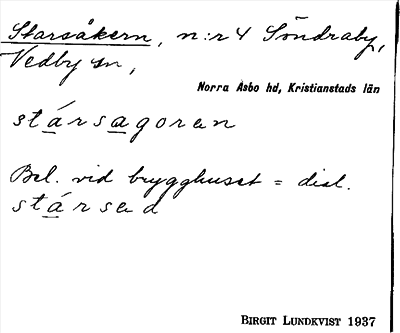 Starsåkern, n:r 4 Söndraby,
Vedby sn,
Norra Åsbo hd, Kristianstads län
stársagoren
Bel. vid brygghuset = dial.
stársed
BIRGIT LUNDKVIST 1937